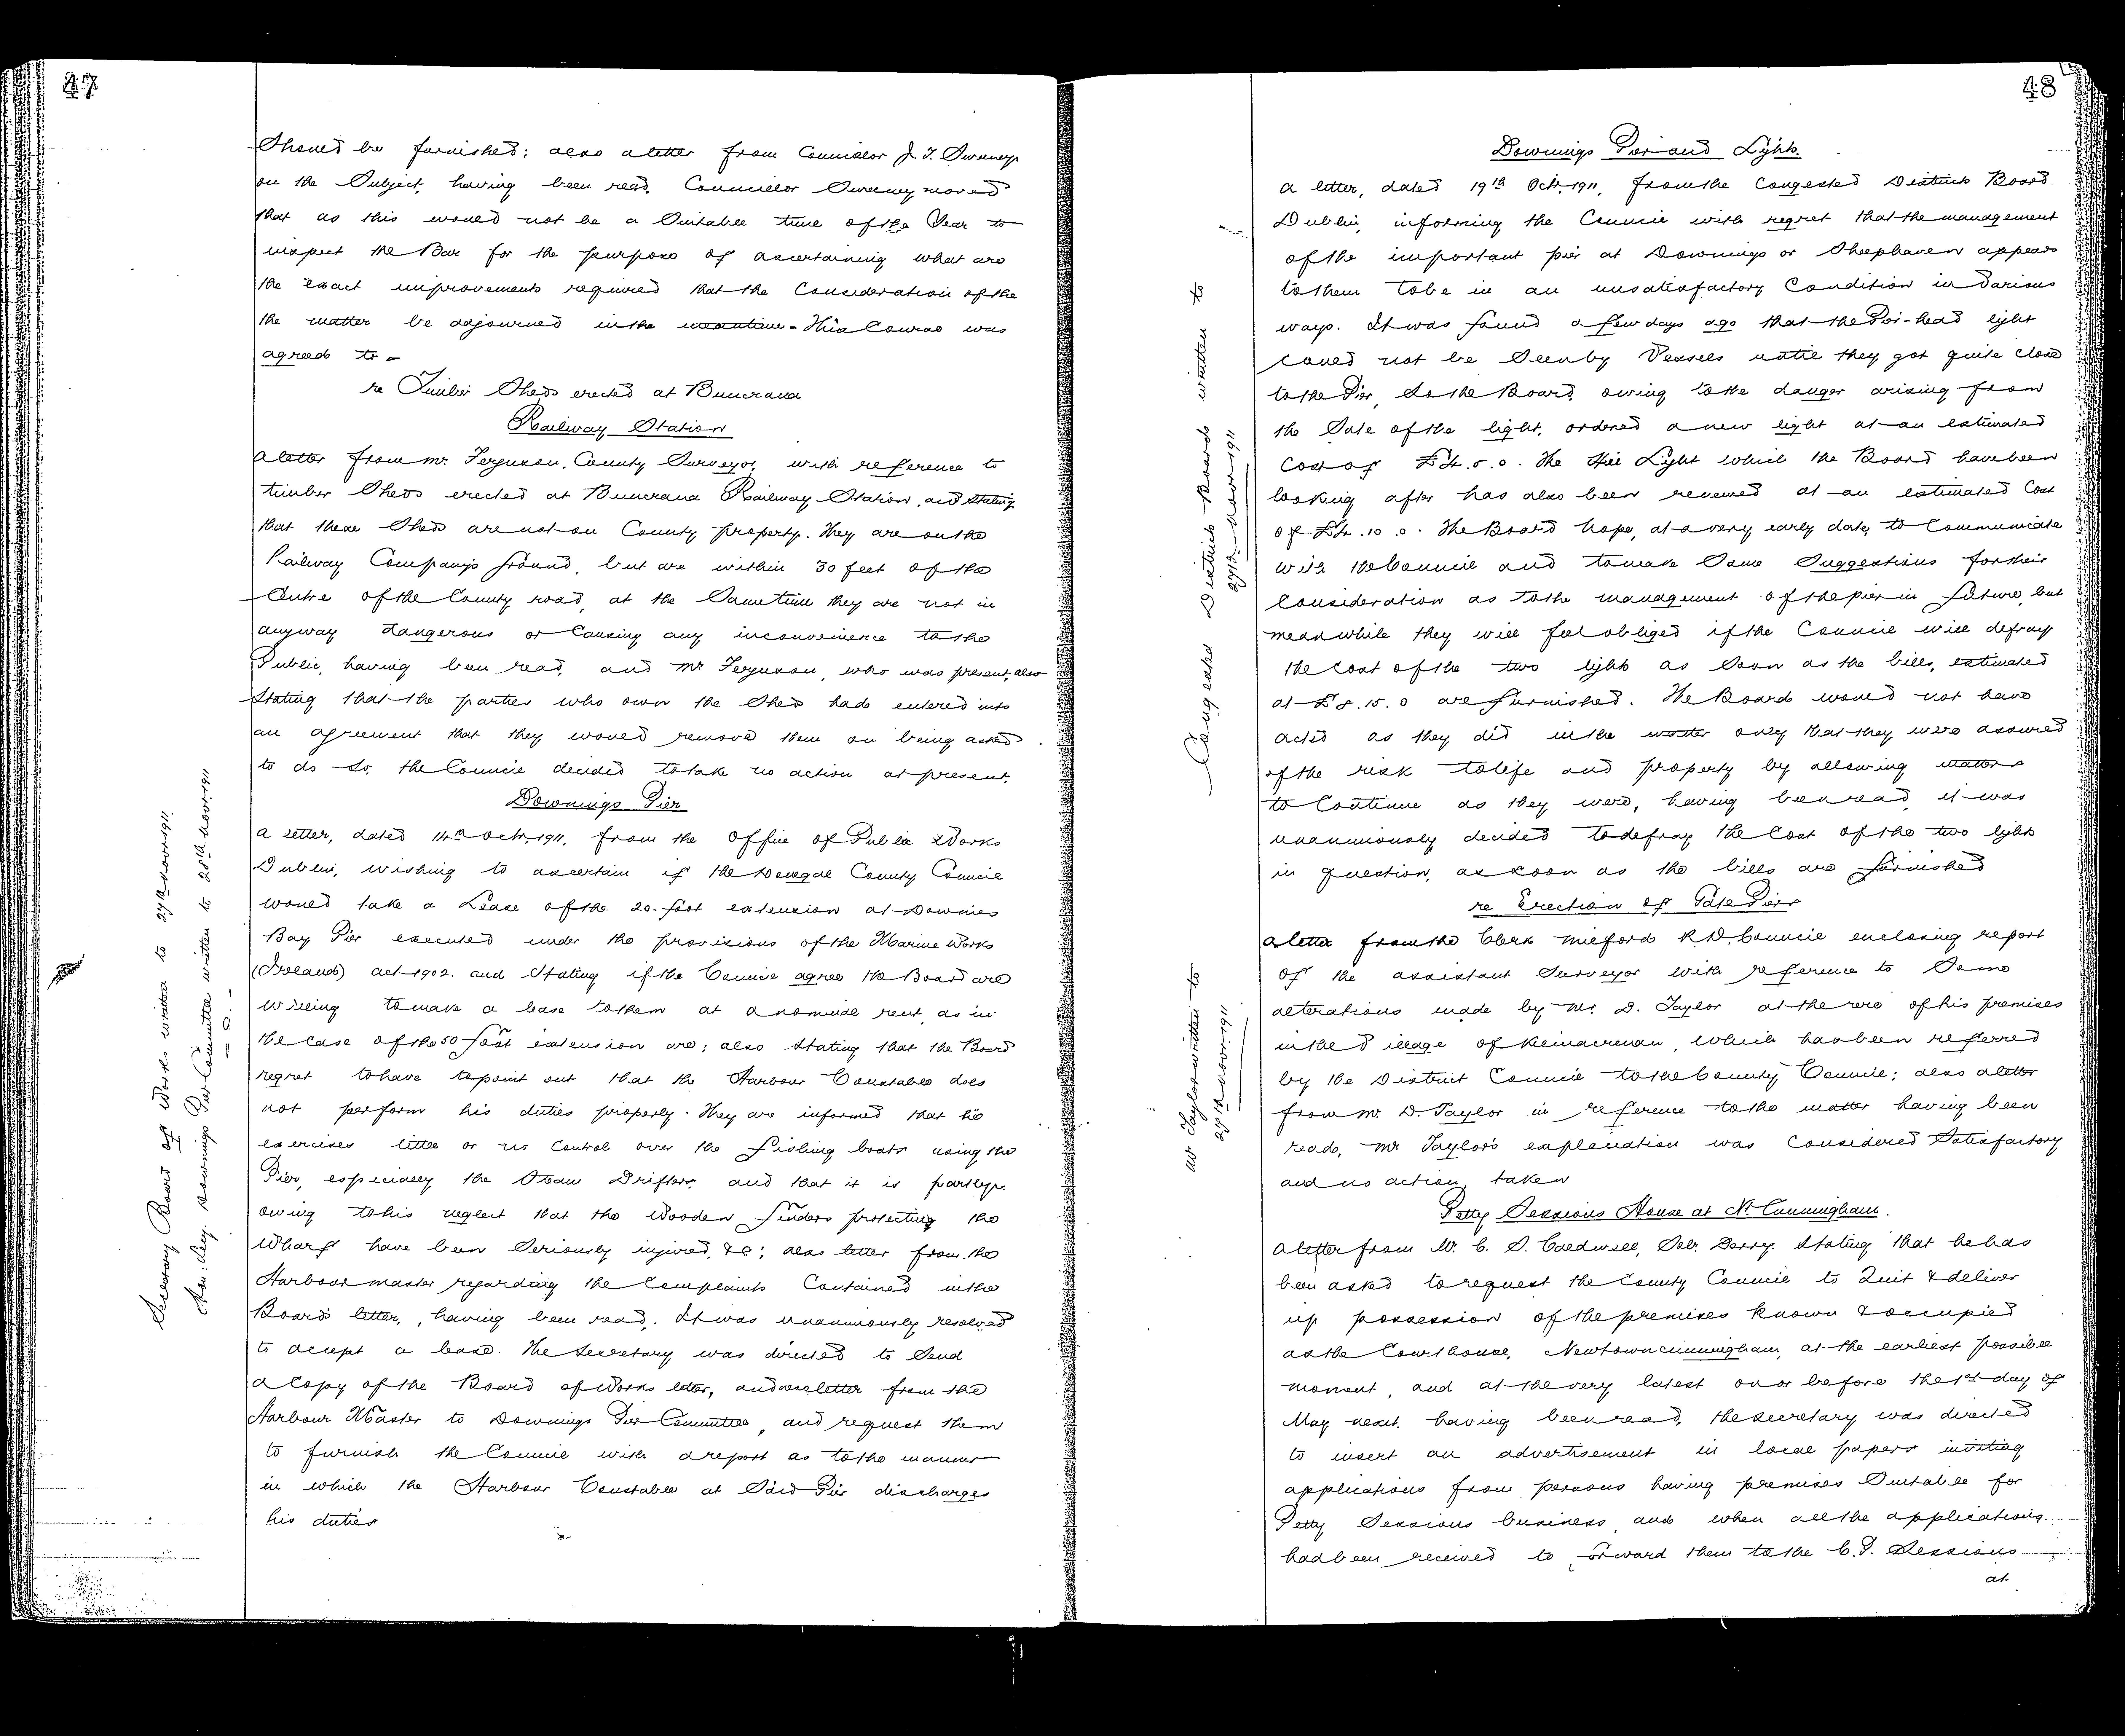 47
Should be furnished; also a letter from Councillor J. T. Sweeney
on the Subject, having been read, Councillor Sweeney moved
that as this would not be a Suitable time of the Year to
inspect the Bar for the purpose of ascertaining what are
the exact improvements required that the Consideration of the
the matter be adjourned in the meantime - This Course was
agreed to -
re Timber Sheds erected at Buncrana
Railway Station
A letter from Mr. Ferguson, County Surveyor, with reference to
timber Sheds erected at Buncrana Railway Station, and Stating
that these Sheds are not on County property. They are on the
Railway Company's ground, but are within 30 feet of the
Centre of the County road, at the Same time they are not in
anyway dangerous or Causing any inconvenience to the
Public, having been read, and Mr Ferguson, who was present, also
Stating that the parties who own the Sheds had entered into
an agreement that they would remove them on being asked
to do So, the Council decided to take no action at present.
Downings Pier
A letter, dated 14th Octr. 1911, from the Office of Public Works
Dublin, wishing to ascertain if the Donegal County Council
would take a Lease of the 20-foot extension at Downies
Bay Pier executed under the provisions of the Marine Works
(Ireland) Act 1902. and Stating if the Council agree the Board are
willing to make a lease to them at a nominal rent, as in
the case of the 50 foot extension are; also Stating that the Board
regret to have to point out that the Harbour Constable does
not perform his duties properly. They are informed that he
exercises little or no Control over the fishing boats using the
Pier, especially the Steam Drifters, and that it is partly
owing to his neglect that the Wooden fenders protecting the
Wharf have been Seriously injured, &c; also letter from the
Harbour master regarding the Complaints Contained in the
Board's letter, , having been read. It was unanimously resolved
to accept a lease. The Secretary was directed to Send
a Copy of the Board of Works letter, and letter from the
Harbour Master to Downings Pier Committee, and request them
to furnish the Council with a report as to the manner
in which the Harbour Constable at Said Pier discharges
his duties
Secretary Board of Works written to 27th Novr. 1911.
Hon: Secy. Downings Pier Committee written to 28th Novr. 1911
48
Downings Pier and Lights.
A letter, dated 19th Octr. 1911, from the Congested Districts Board
Dublin, informing the Council with regret that the management
of the important pier at Downings or Sheephaven appears
to them to be in an unsatisfactory Condition in Various
ways. It was found a few days ago that the Pier-head light
could not be Seen by Vessels until they got quite close
to the Pier, So the Board, owing to the danger arising from
the State of the light, ordered a new light at an estimated
cost of £4.5.0. The Light which the Board have been
looking after has also been renewed at an estimated Cost
of £4.10.0. The Board hope, at a very early date, to Communicate
with the Council and to make Some Suggestions for their
Consideration as to the management of the pier in future, but
meanwhile they will feel obliged if the Council will defray
the Cost of the two lights as Soon as the bills, estimated
at £8.15.0 are furnished. The Board would not have
acted as they did in the matter only that they were assured
of the risk to life and property by allowing matters
to Continue as they were, having been read, it was
unanimously decided to defray the Cost of the two lights
in question, as soon as the bills are furnished
re Erection of Gate Piers
A letter from the Clerk Milford R.D. Council enclosing report
of the Assistant Surveyor with reference to Some
alterations made by Mr. D. Taylor at the rere of his premises
in the Village of Kilmacrenan, which has been referred
by the District Council to the County Council; also a letter
from Mr D. Taylor in reference to the matter having been
read, Mr Taylor's explanation was Considered Satisfactory
and no action taken
Petty Sessions House at N. Cunningham.
A letter from Mr. C. S. Caldwell, Solr. Derry. Stating that he has
been asked to request the County Council to Quit & deliver
up possession of the premises known & occupied
as the Courthouse, Newtowncunningham, at the earliest possible
moment, and at the very latest on or before the 1st day of
May next, having been read, the Secretary was directed
to insert an advertisement in local papers inviting
applications from persons having premises Suitable for
Petty Sessions business and when all the applications
had been received to forward them to the C. P. Sessions
at
Congested Districts Board written to
27th Novr 1911
Mr Taylor written to
27th Novr. 1911